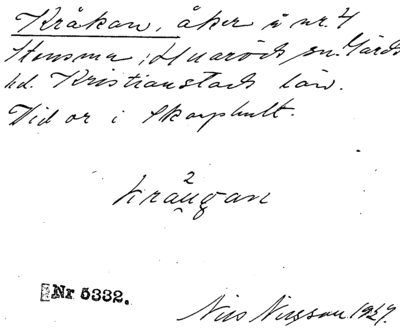 Kråkan, åker å nr. 4
Huaröds sn. Gärds
hd. Kristianstads län.
Vid or i Skarphult.
2
kråu̯gan
Nr 5332.
Nils Nilsson 1929.